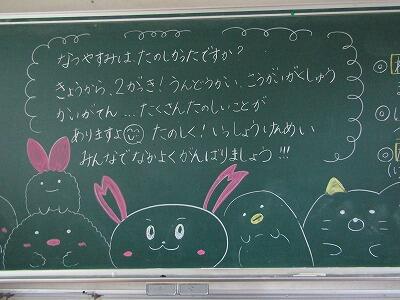 なつやすみは、たのしかったですか?
きょうから、2がっき!うんどうかい、こうがいがくしゅう
かいがてん…たくさんたのしいことが
ありますよ たのしく!いっしょうけんめい
みんなでなかよくがんばりましょう!!!